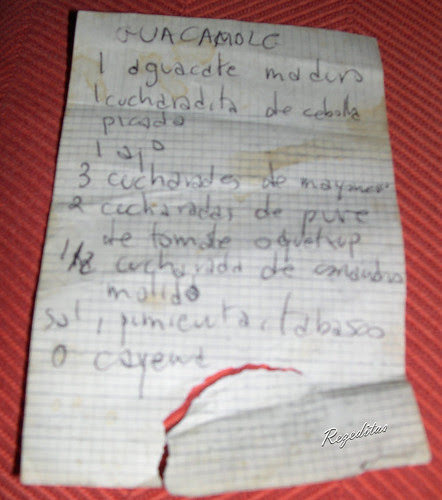 GUACAMOLE
1 aguacate maduro
1 cucharadita de cebolla
picada
1 ajo
3 cucharadas de mayones
2 cucharadas de pure
de tomate o quetxup
1/2 cucharada de comandro
molido
sal, pimienta, tabasco
o cayena
Regeditus